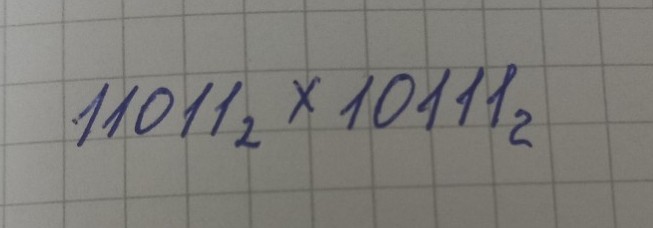 11011₂ × 10111₂